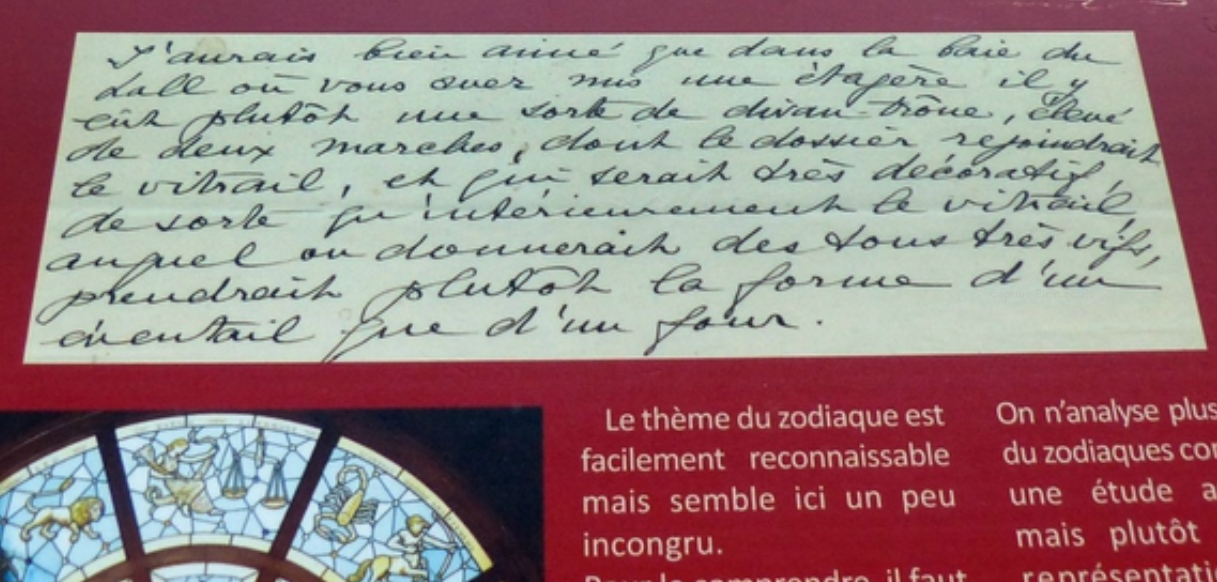 J'aurais bien aimé que dans la baie du
hall où vous avez mis une étagère il y
eût plutôt une sorte de divan-trône, élevé
de deux marches, dont le dossier rejoindrait
le vitrail, et qui serait très décoratif,
de sorte qu'intérieurement le vitrail,
auquel on donnerait des tons très vifs,
prendrait plutôt la forme d'un
éventail que d'un four.
Le thème du zodiaque est
facilement reconnaissable
mais semble ici un peu
incongru.
Pour le comprendre, il faut
On n'analyse plus
du zodiaques
une étude
mais plutôt